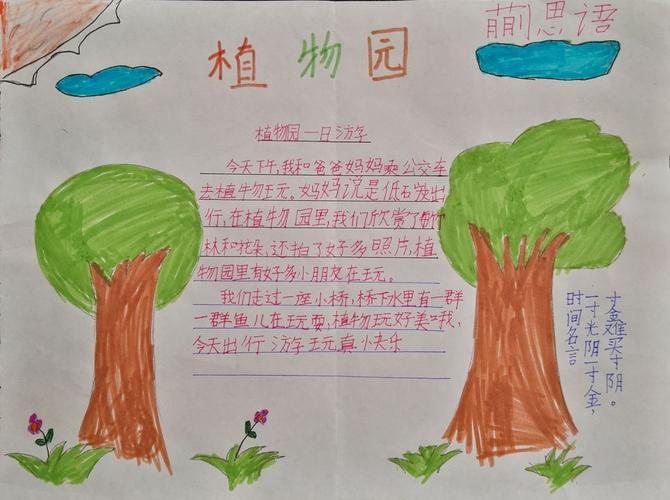 植物园
萠思语
植物园一日游
今天下午,我和爸爸妈妈乘公交车
去植牛勿玩。妈妈说是低石炭出
行,在植物园里,我们欣赏了树
林和花朵,还拍了好多照片,植
物园里有好多小朋友在玩。
我们走过一座小桥,桥下水里有一群
一群鱼儿在玩耍,植物玩好美哦,
今天出行游玩真快乐
时间名言
一寸光阴一寸金,
寸金难买寸阴。